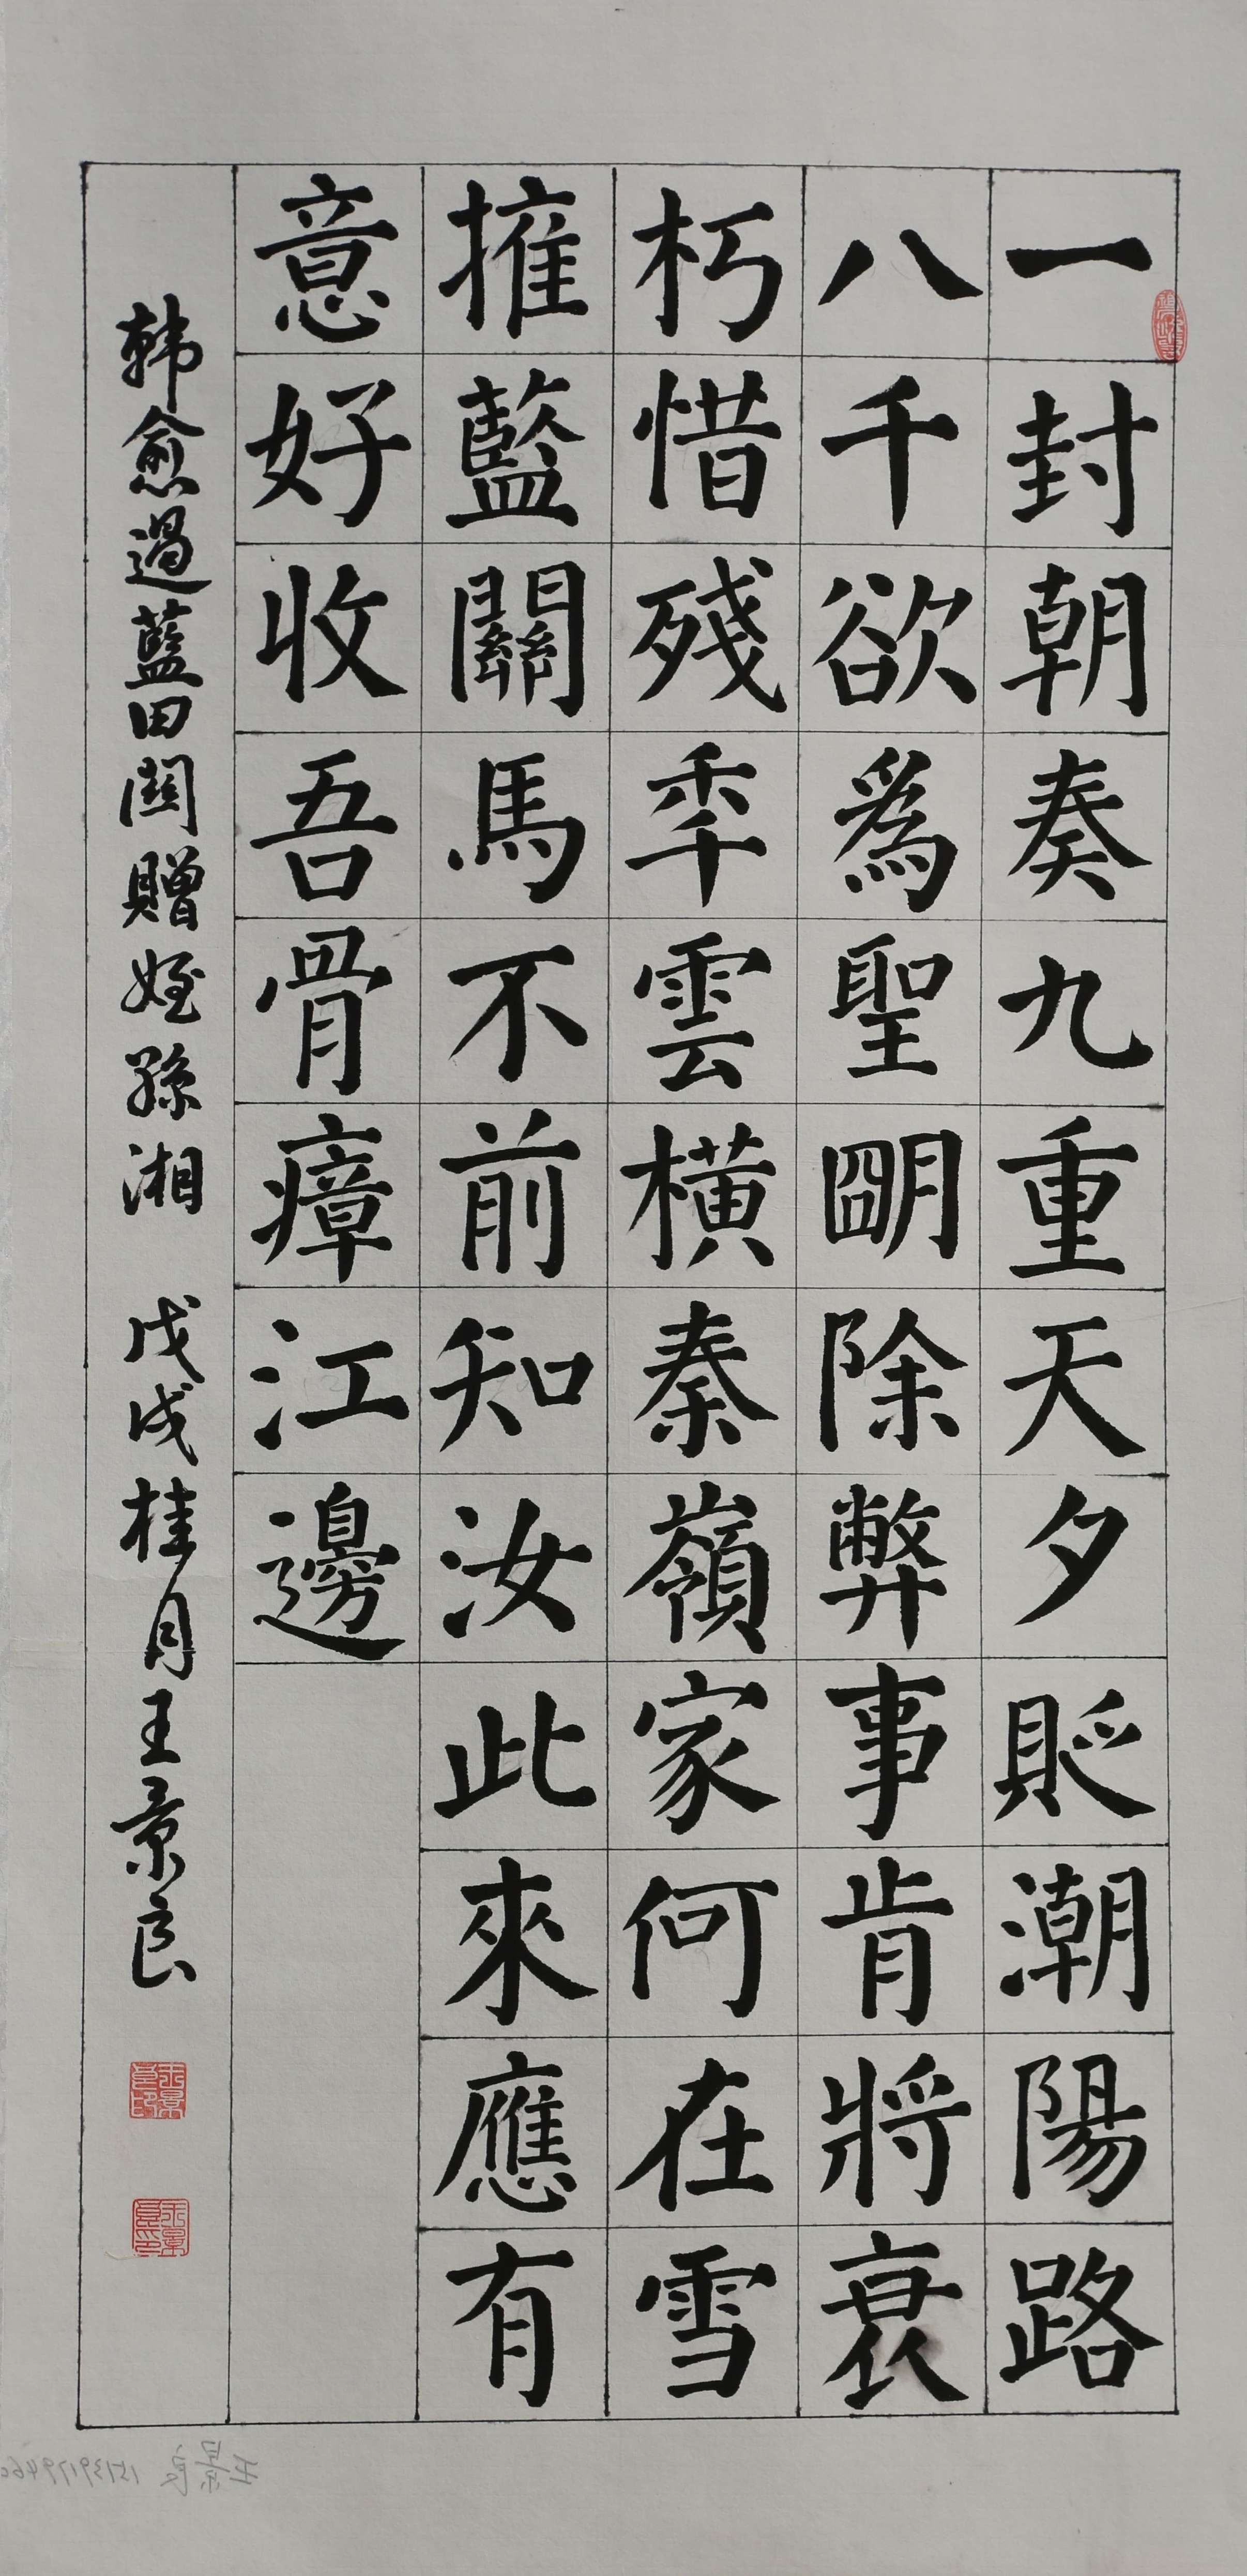 一封朝奏九重天夕貶潮陽路
八千欲爲聖朙除弊事肯將衰
朽惜殘秊雲橫秦嶺家何在雪
擁藍關馬不前知汝此來應有
意好收吾骨瘴江邊
韩愈過藍田關贈姪孫湘 戊戌桂月王景良
王景良印
王景良印
王景良